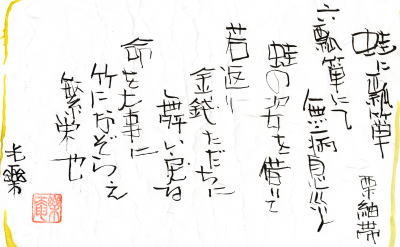 蛙に瓢箪
栗紬帯
六瓢箪にて
無病息災
蛙の姿を借りて
若返り
金銭ただちに
舞い戻る
命を大事に
竹になぞらえ
繁栄也